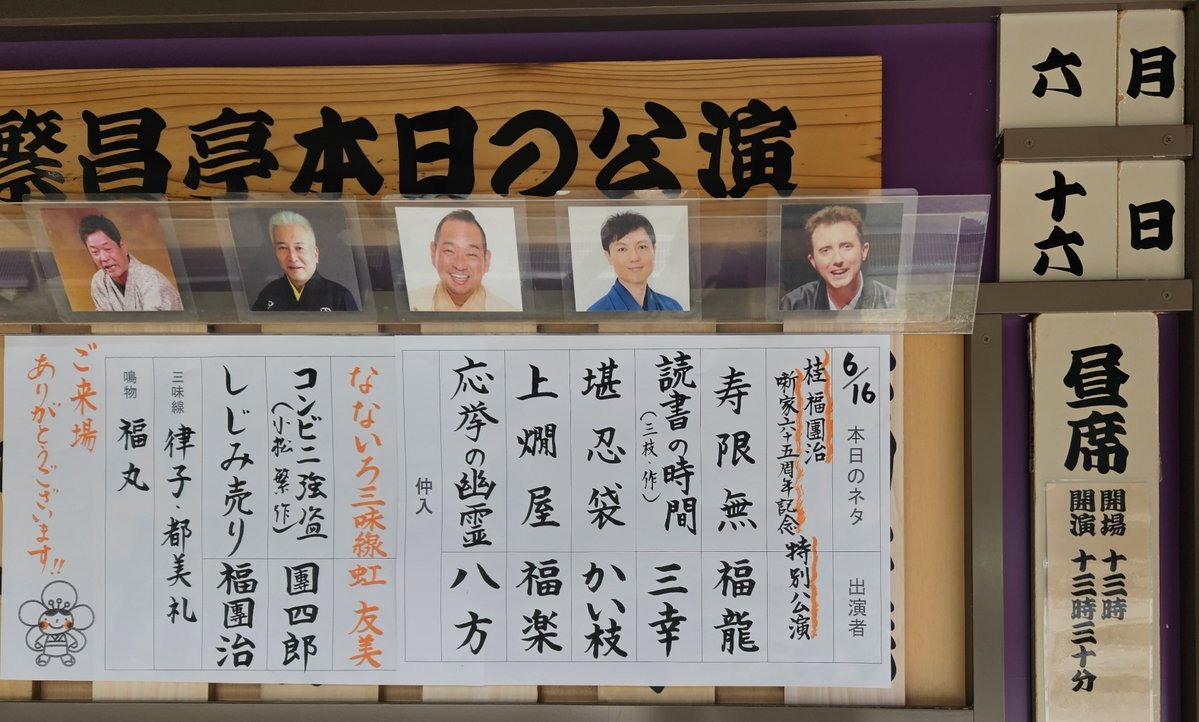 繁昌亭本日の公演
六月
十六日
昼席
開場 十三時
開演 十三時三十分
6/16 本日のネタ 出演者
桂福團治
噺家六十五周年記念 特別公演
寿限無 福龍
読書の時間(三枝・作) 三幸
堪忍袋 かい枝
上燗屋 福楽
応挙の幽霊 八方
仲入
なないろ三味線 虹友美
コンビニ強盗(小松繁作) 團四郎
しじみ売り 福團治
三味線 律子・都美礼
鳴物 福丸
ご来場
ありがとうございます!!